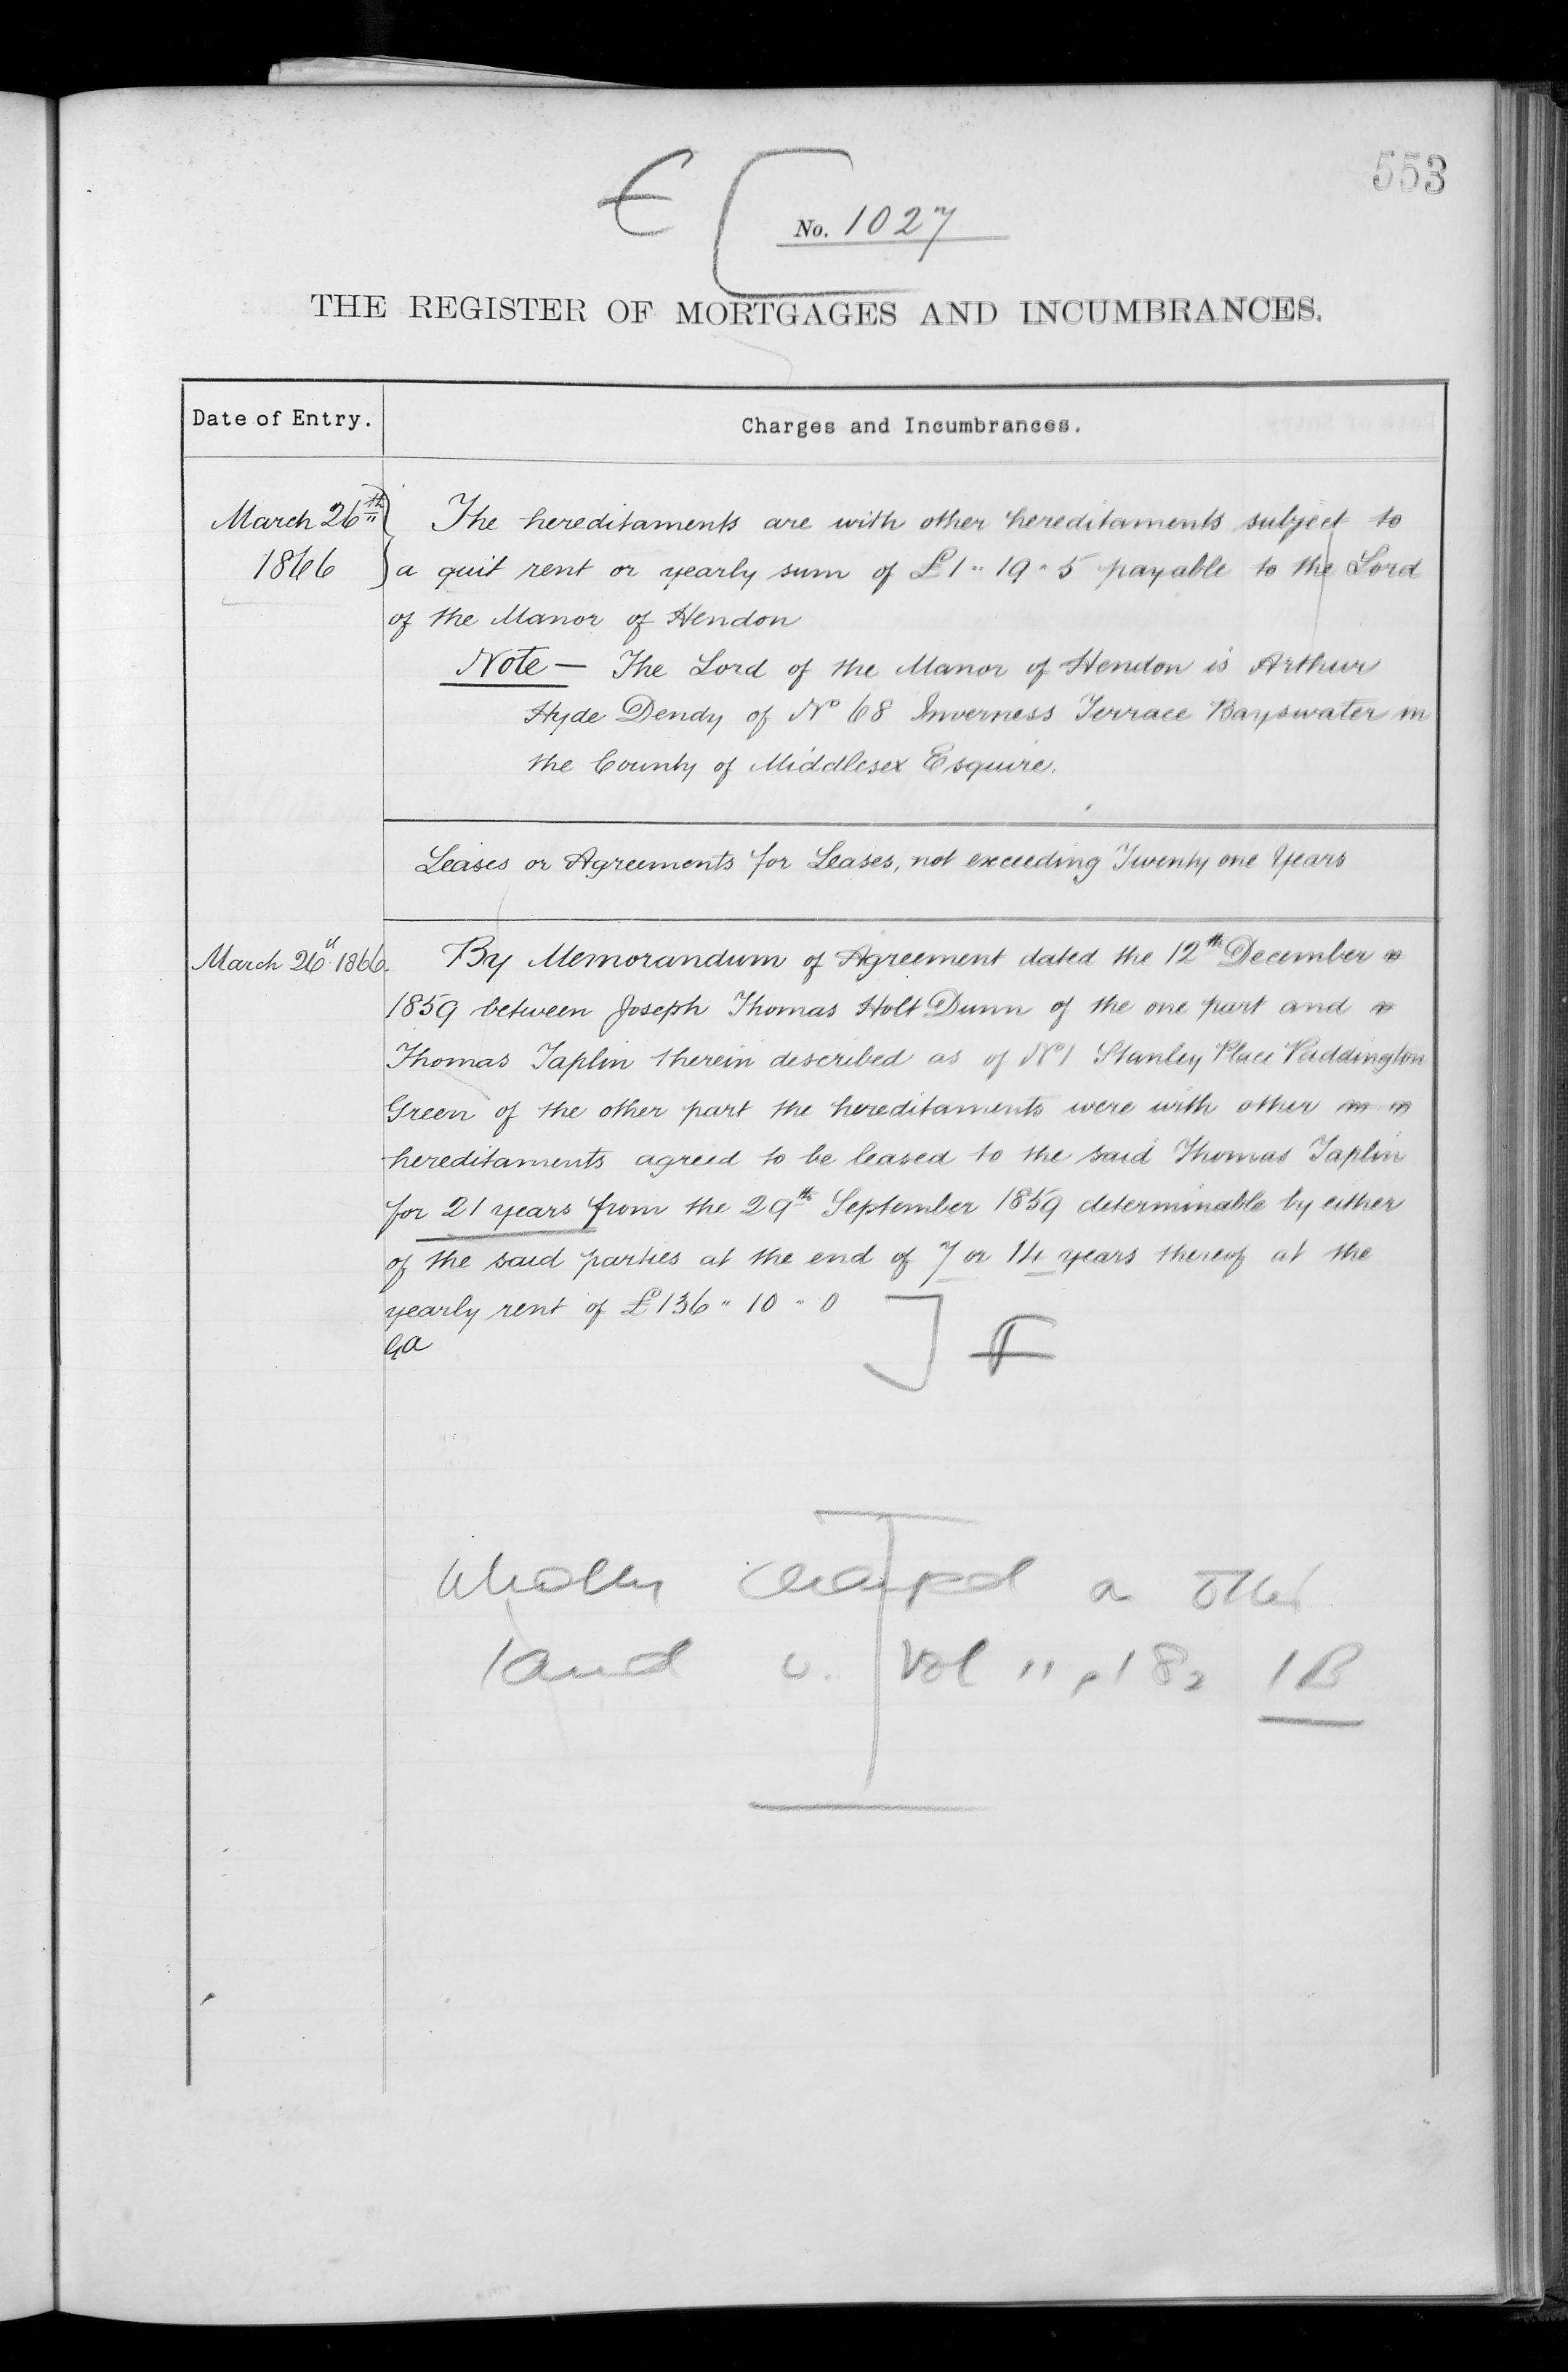 553
E
No. 1027
THE REGISTER OF MORTGAGES AND INCUMBRANCES.
Date of Entry.
Charges and Incumbrances.
March 26th 1866
The hereditaments are with other hereditaments subject to
a quit rent or yearly sum of £1" 19" 5 payable to the Lord
of the Manor of Hendon
Note — The Lord of the Manor of Hendon is Arthur
Hyde Dendy of No 68 Inverness Terrace Bayswater in
the County of Middlesex Esquire.
Leases or Agreements for Leases, not exceeding Twenty one Years
March 26th 1866.
By Memorandum of Agreement dated the 12th December
1859 between Joseph Thomas Holt Dunn of the one part and
Thomas Taplin therein described as of No 1 Stanley Place Paddington
Green of the other part the hereditaments were with other
hereditaments agreed to be leased to the said Thomas Taplin
for 21 years from the 29th September 1859 determinable by either
of the said parties at the end of 7 or 14 years thereof at the
yearly rent of £136" 10" 0
GA
F
Wholly charged on other
land v. Vol 11 p 182 1B